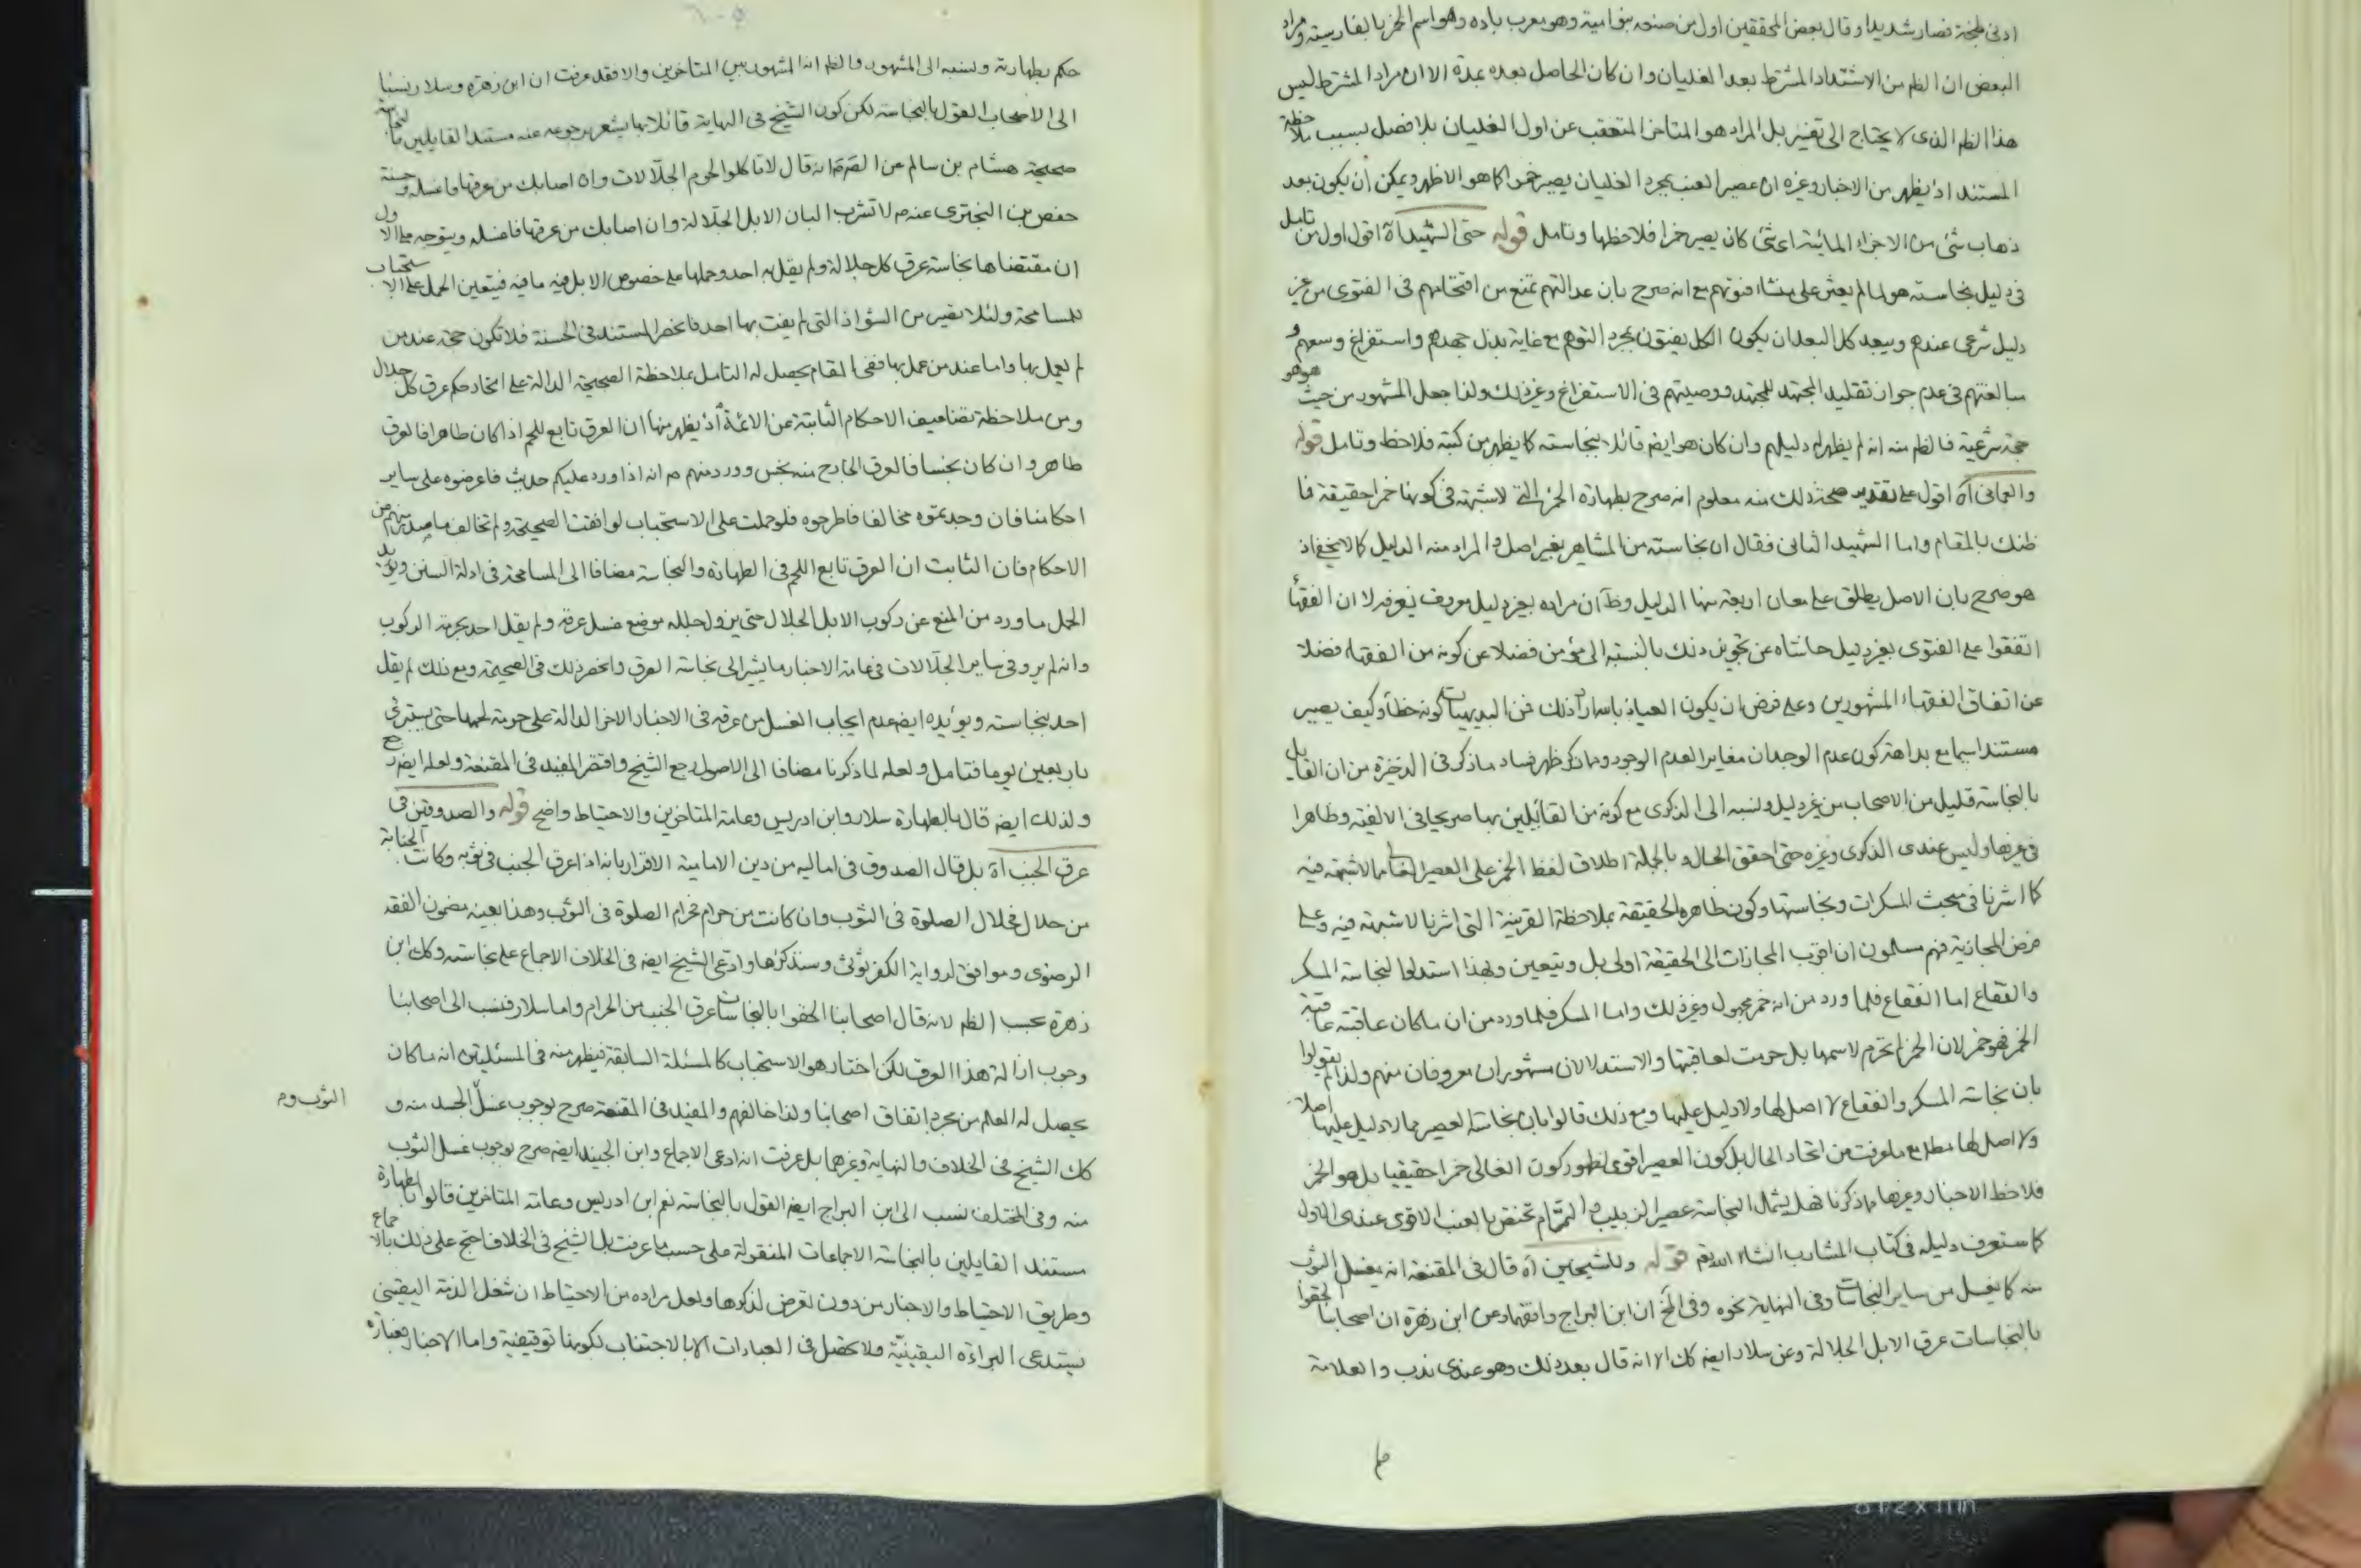 ادنى طبخة فصار شديدا وقال بعض المحققين اول من صنعه بنو امية وهو معرب باده وهو اسم الخمر بالفارسية ومراد
البعض ان الظم من الاشتداد المشترط بعد الغليان وان كان الحاصل بعده بمدة الا ان مراد المشترط ليس
هذا الظم الذى لا يحتاج الى تفسير بل المراد هو المتاخر المتعقب عن اول الغليان بلا فصل بسبب ملاحظة
المستند اذ يظهر من الاخبار وغيره ان عصير العنب بمجرد الغليان يصير خمرا كما هو الاظهر ويمكن أن يكون بعد
ذهاب شئ من الاجزاء المائية اى شئ كان يصير خمرا فلاحظها وتامل قوله حتى الشهيد آه اقول اول من تامل
فى دليل نجاسته هو لما لم يعثر على منشاء فتوتهم مع انه صرح بان عدالتهم تمنع من اقتحامهم فى الفتوى من غير
دليل شرعى عندهم ويبعد كل البعد ان يكون الكل يفتون بمجرد التوهم مع غاية بذل جهدهم واستفراغ وسعهم و
مبالغتهم فى عدم جواز تقليد المجتهد للمجتهد ووصيتهم فى الاستفراغ وغير ذلك ولذا جعل المشهور من حيث هو هو
حجة شرعية فالظم منه انه لم يظهر له دليلهم وان كان هو ايضم قائلا بنجاسته كما يظهر من كتبه فلاحظ وتامل قوله
والعمانى آه اقول على تقدير صحة ذلك منه معلوم انه صرح بطهارة الخمر التى لا شبهة فى كونها خمرا حقيقة فما
ظنك بالمقام واما الشهيد الثانى فقال ان نجاسته من المشاهير بغير اصل والمراد منه الدليل كما لا يخفى اذ
هو صرح بان الاصل يطلق على معان اربعة منها الدليل وظ ان مراده بغير دليل معروف نعرفه لا ان الفقهأ
اتفقوا على الفتوى بغير دليل حاشاه عن تجويز ذلك بالنسبة الى مؤمن فضلا عن كونه من الفقهاء فضلا
عن اتفاق الفقهاء المشهورين وعلى فرض ان يكون العياذ بالله اراد ذلك فمن البديهيات كونه خطأ وكيف يصير
مستندا سيما مع بداهة كون عدم الوجدان مغايرا لعدم الوجود ومما ذكر ظهر فساد ما ذكر فى الذخيرة من ان القايل
بالنجاسة قليل من الاصحاب من غير دليل ونسبه الى الذكرى مع كونه من القائلين بها صريحا فى الالفية وظاهرا
فى غيرها وليس عندى الذكرى وغيره حتى احقق الحال وبالجملة اطلاق لفظ الخمر على العصير الغالى مما لا شبهة فيه
كما اشرنا فى مبحث المسكرات ونجاستها وكون ظاهره الحقيقة بملاحظة القرينة التى اشرنا لا شبهة فيه وعلى
فرض المجازية فهم مسلمون ان اقرب المجازات الى الحقيقة اولى بل ويتعين وبهذا استدلوا لنجاسة المسكر
والفقاع اما الفقاع فلما ورد من انه خمر مجهول وغير ذلك واما المسكر فلما ورد من ان ما كان عاقبته عاقبة
الخمر فهو خمر لان الخمر لم تحرم لاسمها بل حرمت لعاقبتها والاستدلالان مشهوران معروفان منهم ولذا لم يقولوا
بان نجاسة المسكر والفقاع لا اصل لها ولا دليل عليها ومع ذلك قالوا بان نجاسة العصير مما لا دليل عليها اصلا
ولا اصل لها مطلقا مع ما عرفت من اتحاد الحال بل كون العصير اقوى لظهور كون الغالى خمرا حقيقيا بل هو الخمر
فلاحظ الاخبار وغيرها مما ذكرنا فهل يشمل النجاسة عصير الزبيب والتمر ام تختص بالعنب الاقوى عندى الاول
كما ستعرف دليله فى كتاب المشارب انشاء الله تعم قوله وللشيخين آه قال فى المقنعة انه يغسل الثوب
منه كما يغسل من ساير النجاسات وفى النهاية نحوه وفى المخ ان ابن البراج وافقهما وعن ابن زهرة ان اصحابنا لحقوا
بالنجاسات عرق الابل الجلالة وعن سلار ايضم كك الا انه قال بعد ذلك وهو عندى ندب والعلامة
حكم بطهارته ونسبه الى المشهور والظم انه المشهور بين المتاخرين والا فقد عرفت ان ابن زهرة وسلار نسبا
الى الاصحاب القول بالنجاسة لكن كون الشيخ فى النهاية قائلا بها يشعر برجوعه عنه مستند القايلين بالنجاسة
صحيحة هشام بن سالم عن الصم انه قال لا تاكلوا لحوم الجلالات وان اصابك من عرقها فاغسله وحسنة
حفص بن البخترى عنه م لا تشرب البان الابل الجلالة وان اصابك من عرقها فاغسله ويتوجه على الاول
ان مقتضاها نجاسة عرق كل جلالة ولم يقل به احد وحملها على خصوص الابل فيه ما فيه فيتعين الحمل على الاستحباب
للمسامحة ولئلا تصير من الشواذ التى لم يفت بها احد فانحصر المستند فى الحسنة فلا تكون حجة عند من
لم يعمل بها واما عند من عمل بها ففى المقام يحصل له التامل بملاحظة الصحيحة الدالة على اتحاد حكم عرق كل جلال
ومن ملاحظة تضاعيف الاحكام الثابتة عن الائمة اذ يظهر منها ان العرق تابع للحم اذا كان طاهرا فالعرق
طاهر وان كان نجسا فالعرق الخارج منه نجس وورد منهم م انه اذا ورد عليكم حديث فاعرضوه على ساير
احكامنا فان وجدتموه مخالفا فاطرحوه فلو حملت على الاستحباب لوافقت الصحيحة ولم تخالف ما صدر منهم من
الاحكام فان الثابت ان العرق تابع اللحم فى الطهارة والنجاسة مضافا الى المسامحة فى ادلة السنن ويؤيد
الحمل ما ورد من المنع عن ركوب الابل الجلال حتى يزول جلله موضع غسل عرقه ولم يقل احد بحرمة الركوب
وانه لم يرو فى ساير الجلالات فى عامة الاخبار ما يشير الى نجاسة العرق وانحصر ذلك فى الصحيحة ومع ذلك لم يقل
احد بنجاسته ويؤيده ايضم عدم ايجاب الغسل من عرقه فى الاخبار الاخر الدالة على حرمة لحمها حتى يستبرئ
باربعين يوما فتامل ولعله لما ذكرنا مضافا الى الاصول رجع الشيخ واقتصر المفيد فى المقنعة ولعله ايضم رجع
ولذلك ايضم قال بالطهارة سلار وابن ادريس وعامة المتاخرين والاحتياط واضح قوله والصدوقين فى
عرق الجنب آه بل قال الصدوق فى اماليه من دين الامامية الاقرار بانه اذا عرق الجنب فى ثوبه وكانت الجنابة
من حلال فحلال الصلوة فى الثوب وان كانت من حرام فحرام الصلوة فى الثوب وهذا بعينه مضمون الفقه
الرضوى وموافق لرواية الكفرتوثى وسنذكرها وادعى الشيخ ايضم فى الخلاف الاجماع على نجاسته وكك ابن
زهرة بحسب الظم لانه قال اصحابنا الحقوا بالنجاسات عرق الجنب من الحرام واما سلار فنسب الى اصحابنا
وجوب ازالة هذا العرق لكن اختار هو الاستحباب كالمسئلة السابقة فيظهر منه فى المسئلتين انه ما كان
يحصل له العلم من مجرد اتفاق اصحابنا ولذا خالفهم والمفيد فى المقنعة صرح بوجوب غسل الجسد منه و
الثوب وم
كك الشيخ فى الخلاف والنهاية وغيرهما بل عرفت انه ادعى الاجماع وابن الجنيد ايضم صرح بوجوب غسل الثوب
منه وفى المختلف نسب الى ابن البراج ايضم القول بالنجاسة نعم ابن ادريس وعامة المتاخرين قالوا بالطهارة
مستند القايلين بالنجاسة الاجماعات المنقولة على حسب ما عرفت بل الشيخ فى الخلاف احتج على ذلك بالاجماع
وطريق الاحتياط والاخبار من دون تعرض لذكرها ولعل مراده من الاحتياط ان شغل الذمة اليقينى
يستدعى البراءة اليقينية ولا تحصل فى العبادات الا بالاجتناب لكونها توقيفية واما الاخبار فعبارة